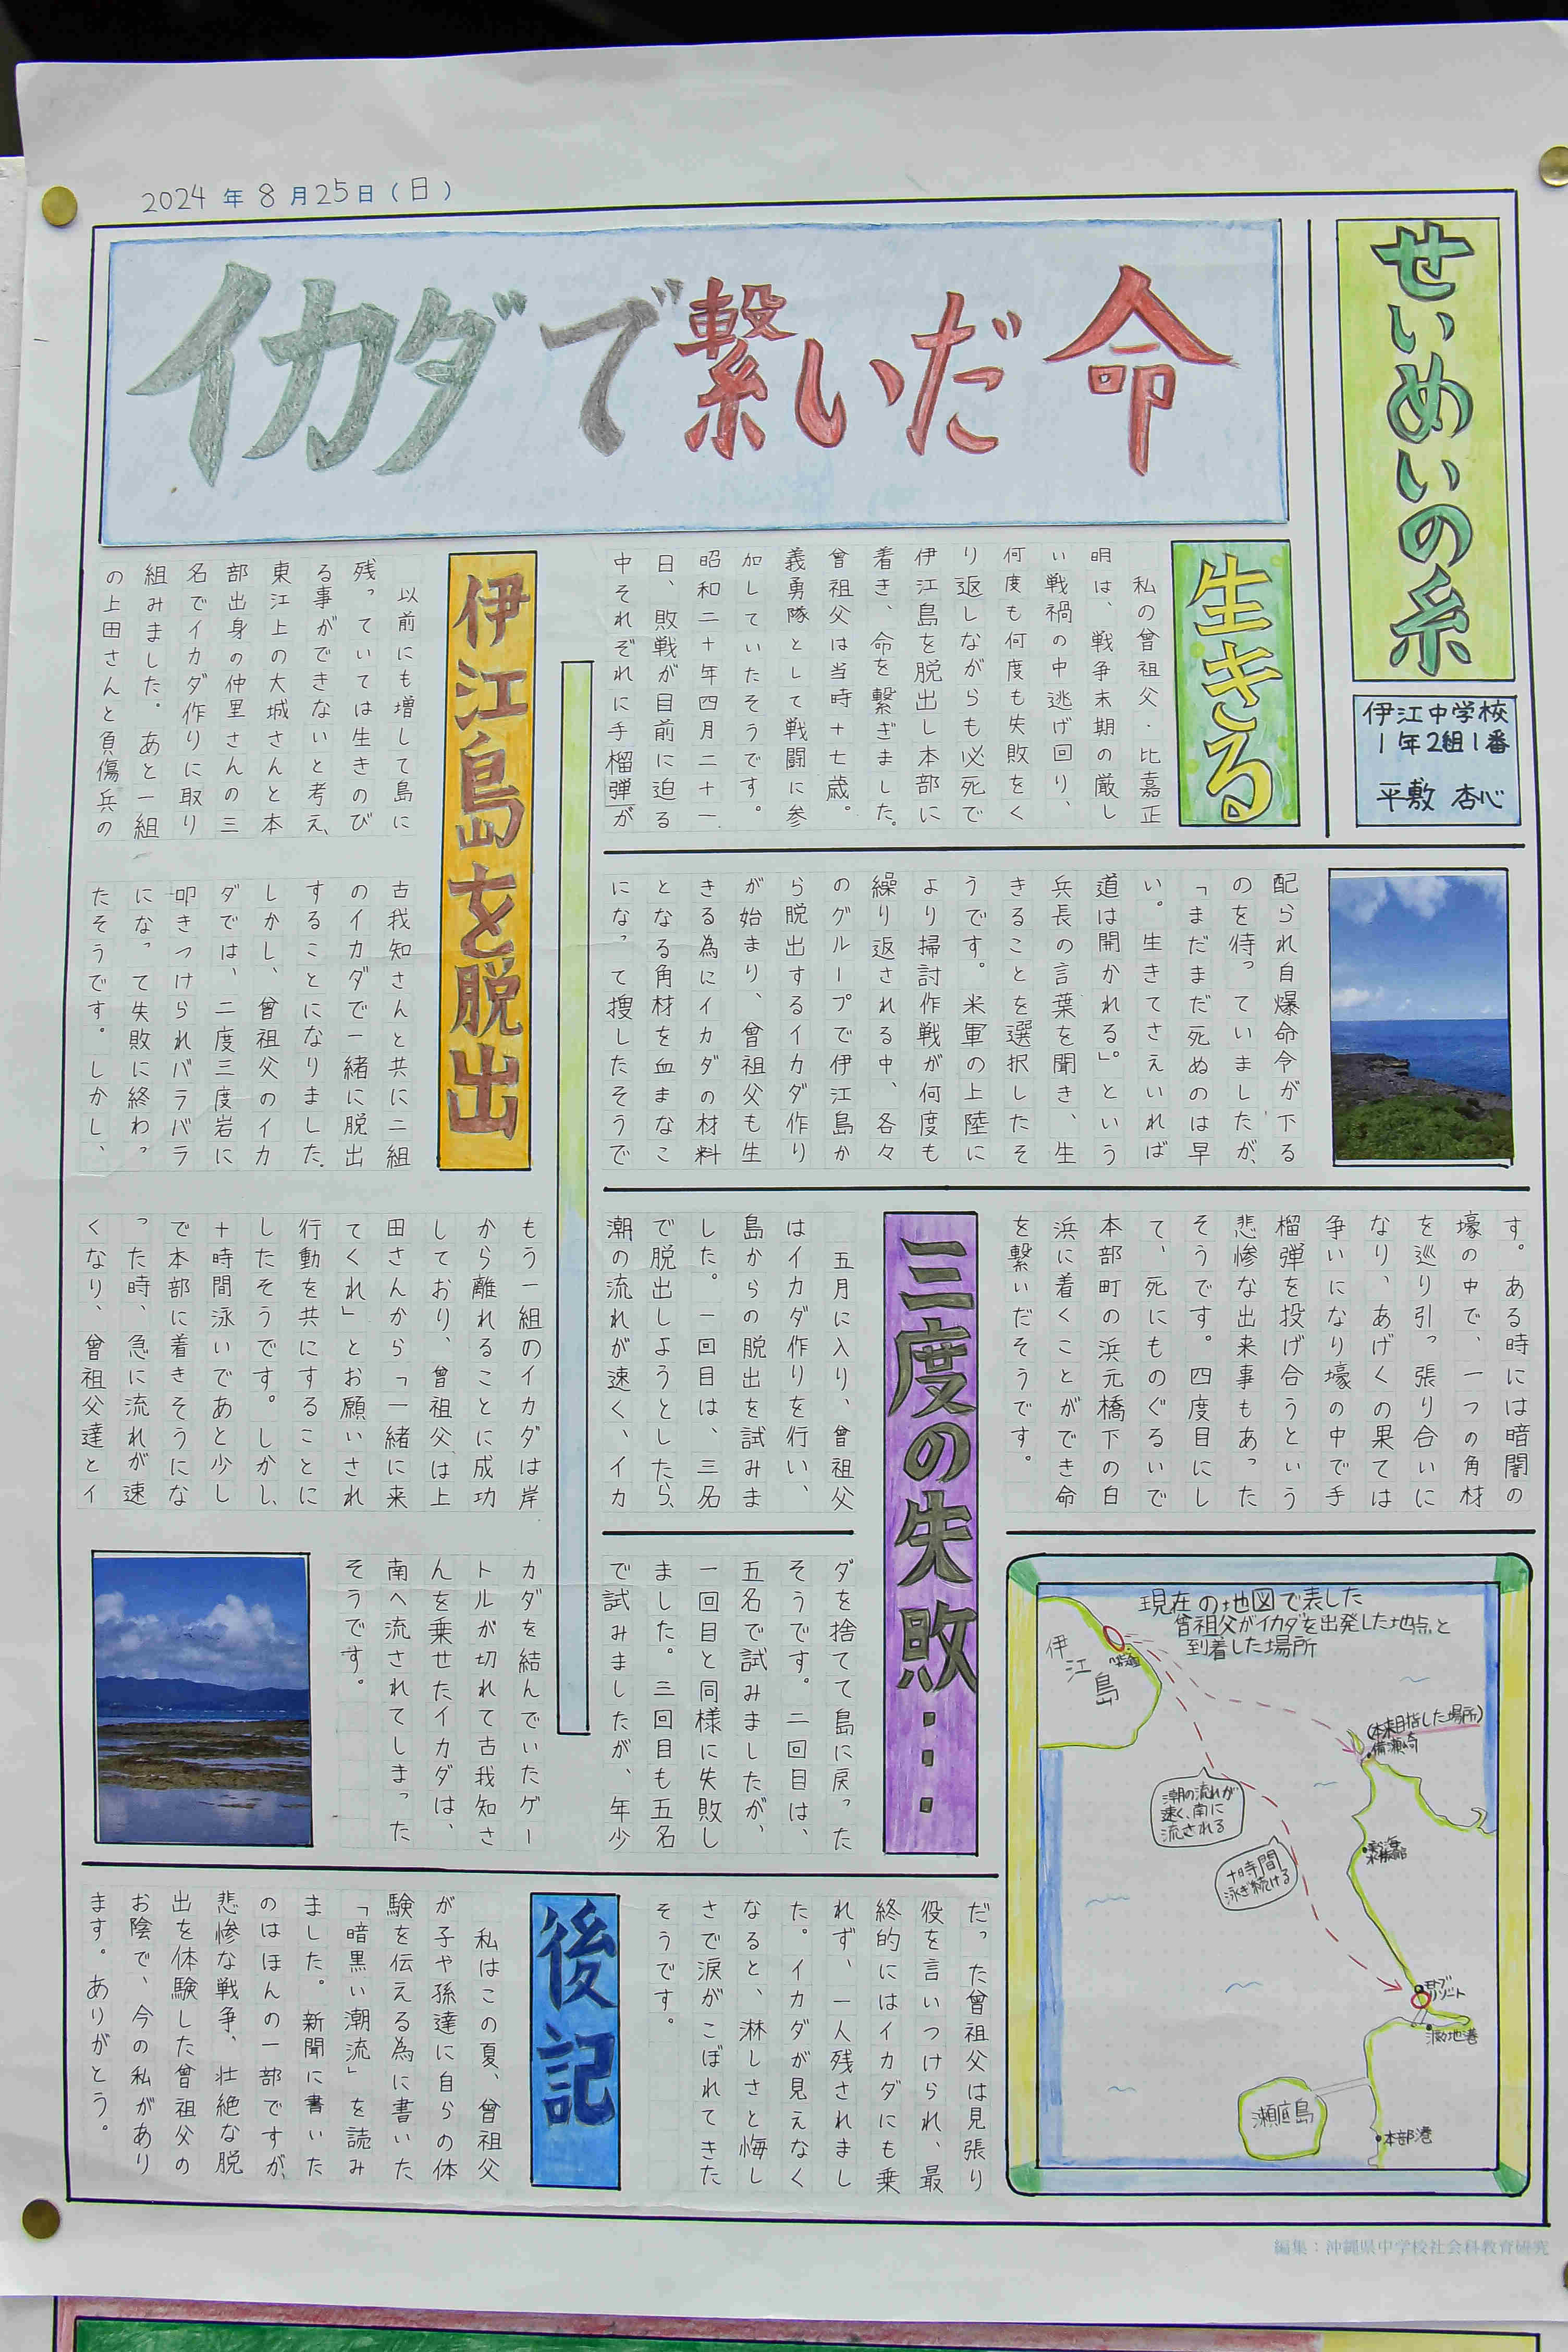 2024年8月25日(日)
せいめいの糸
伊江中学校
1年2組1番
平敷 杏心
イカダで繋いだ命
生きる
私の曾祖父・比嘉正
明は、戦争末期の厳し
い戦禍の中逃げ回り、
何度も何度も失敗をく
り返しながらも必死で
伊江島を脱出し本部に
着き、命を繋ぎました。
曾祖父は当時十七歳。
義勇隊として戦闘に参
加していたそうです。
昭和二十年四月二十一
日、敗戦が目前に迫る
中それぞれに手榴弾が
配られ自爆命令が下る
のを待っていましたが、
「まだまだ死ぬのは早
い。生きてさえいれば
道は開かれる」。という
兵長の言葉を聞き、生
きることを選択したそ
うです。米軍の上陸に
より掃討作戦が何度も
繰り返される中、各々
のグループで伊江島か
ら脱出するイカダ作り
が始まり、曾祖父も生
きる為にイカダの材料
となる角材を血まなこ
になって捜したそうで
す。ある時には暗闇の
壕の中で、一つの角材
を巡り引っ張り合いに
なり、あげくの果ては
争いになり壕の中で手
榴弾を投げ合うという
悲惨な出来事もあった
そうです。四度目にし
て、死にものぐるいで
本部町の浜元橋下の白
浜に着くことができ命
を繋いだそうです。
三度の失敗・・・
五月に入り、曾祖父
はイカダ作りを行い、
島からの脱出を試みま
した。一回目は、三名
で脱出しようとしたら、
潮の流れが速く、イカ
ダを捨てて島に戻った
そうです。二回目は、
五名で試みましたが、
一回目と同様に失敗し
ました。三回目も五名
で試みましたが、年少
だった曾祖父は見張り
役を言いつけられ、最
終的にはイカダにも乗
れず、一人残されまし
た。イカダが見えなく
なると、淋しさと悔し
さで涙がこぼれてきた
そうです。
伊江島を脱出
以前にも増して島に
残っていては生きのび
る事ができないと考え、
東江上の大城さんと本
部出身の仲里さんの三
名でイカダ作りに取り
組みました。あと一組
の上田さんと負傷兵の
古我知さんと共に二組
のイカダで一緒に脱出
することになりました。
しかし、曾祖父のイカ
ダでは、二度三度岩に
叩きつけられバラバラ
になって失敗に終わっ
たそうです。しかし、
もう一組のイカダは岸
から離れることに成功
しており、曾祖父は上
田さんから「一緒に来
てくれ」とお願いされ
行動を共にすることに
したそうです。しかし、
十時間泳いであと少し
で本部に着きそうにな
った時、急に流れが速
くなり、曾祖父達とイ
カダを結んでいたゲー
トルが切れて古我知さ
んを乗せたイカダは、
南へ流されてしまった
そうです。
後記
私はこの夏、曾祖父
が子や孫達に自らの体
験を伝える為に書いた
「暗黒い潮流」を読み
ました。新聞に書いた
のはほんの一部ですが、
悲惨な戦争、壮絶な脱
出を体験した曾祖父の
お陰で、今の私があり
ます。ありがとう。
現在の地図で表した
曾祖父がイカダを出発した地点と
到着した場所
伊江島
(本来目指した場所)
備瀬崎
潮の流れが
速く、南に
流される
十時間
泳ぎ続ける
美ら海
水族館
モトブ
リゾート
渡久地港
瀬底島
本部港
編集：沖縄県中学校社会科教育研究